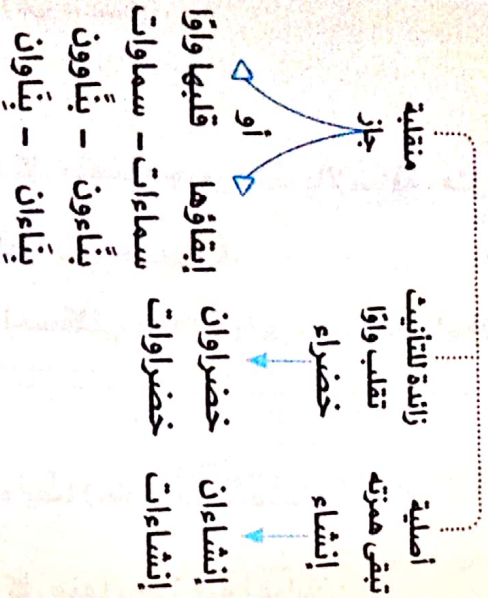 أصلية
تبقى همزته
إنشاء
إنشاءان
إنشاءات
زائدة للتأنيث
تقلب واوًا
خضراء
خضراوان
خضراوات
منقلبة
جاز
إبقاؤها أو قلبها واوًا
سماءات – سماوات
بنَّاءون – بنَّاوون
بنَّاءان – بنَّاوان